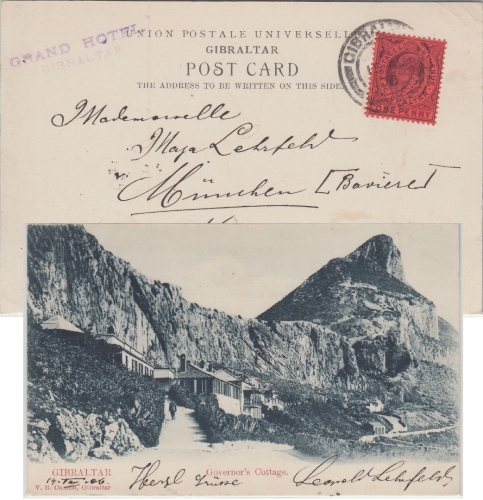 UNION POSTALE UNIVERSELLE
GRAND HOTEL
GIBRALTAR
GIBRALTAR
POST CARD
THE ADDRESS TO BE WRITTEN ON THIS SIDE
GIBRALTAR
ONE PENNY
Mademoiselle
Maja Lehrfeld
München [Bavière]
GIBRALTAR
Governor's Cottage.
V. B. Cumbo, Gibraltar
Herzl Grüsse
Leopold Lehrfeld